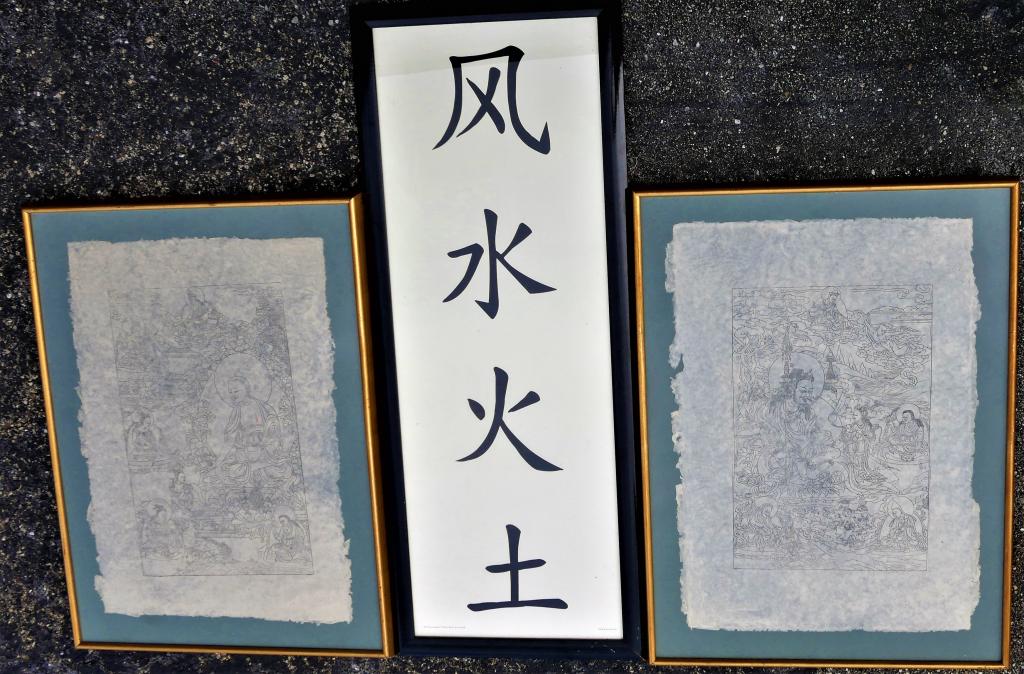 风
水
火
土